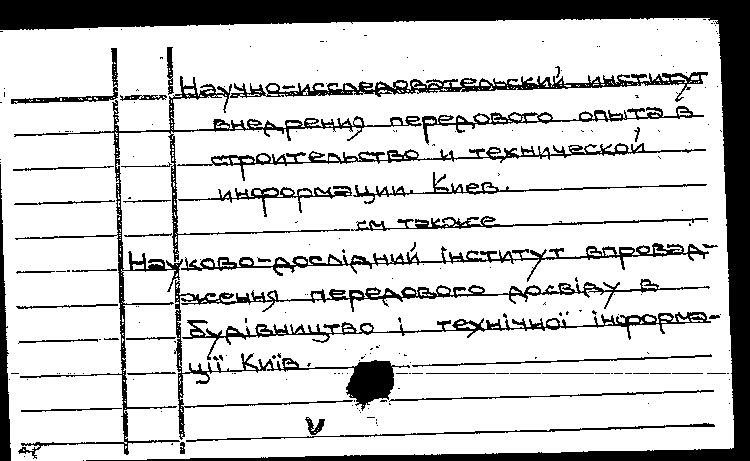 Научно-исследовательский институт
внедрения передового опыта в
строительство и технической
информации. Киев.
см также
Науково-дослідний інститут впровад-
ження передового досвіду в
будівництво і технічної інформа-
ції. Київ.